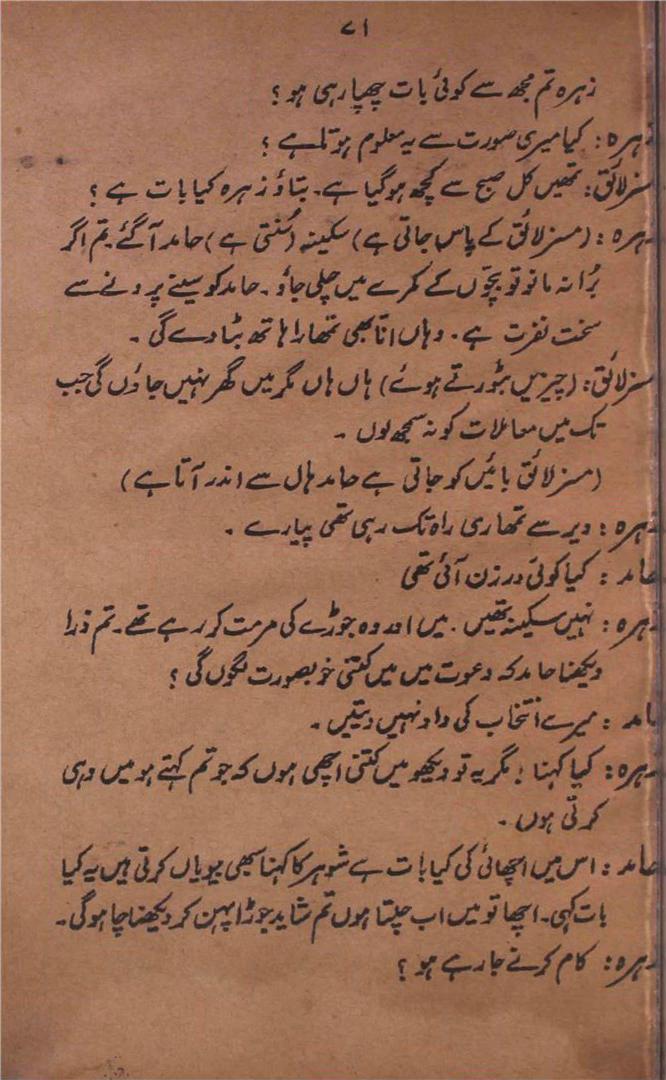 ۷۱
زہرہ تم مجھ سے کوئی بات چھپا رہی ہو ؟
زہرہ : کیا میری صورت سے یہ معلوم ہوتا ہے ؟
مسز لائق : تمھیں کل صبح سے کچھ ہو گیا ہے ۔ بتاؤ زہرہ کیا بات ہے ؟
زہرہ : (مسز لائق کے پاس جاتی ہے) سکینہ (سُنتی ہے) حامد آ گئے ۔ تم اگر
بُرا نہ مانو تو بچّوں کے کمرے میں چلی جاؤ ۔ حامد کو سینے پرونے سے
سخت نفرت ہے ۔ وہاں انا بھی تمھارا ہاتھ بٹا دے گی ۔
مسز لائق : (چیزیں بٹورتے ہوئے) ہاں ہاں مگر میں گھر نہیں جاؤں گی جب
تک میں معاملات کو نہ سمجھ لوں ۔
(مسز لائق بائیں کو جاتی ہے حامد ہال سے اندر آتا ہے)
زہرہ : دیر سے تمھاری راہ تک رہی تھی پیارے ۔
حامد : کیا کوئی درزن آئی تھی
زہرہ : نہیں سکینہ تھیں ۔ میں اور وہ جوڑے کی مرمت کر رہے تھے ۔ تم ذرا
دیکھنا حامد کہ دعوت میں میں کتنی خوبصورت لگوں گی ؟
حامد : میرے انتخاب کی داد نہیں دیتیں ۔
زہرہ : کیا کہنا ! مگر یہ تو دیکھو میں کتنی اچھی ہوں کہ جو تم کہتے ہو میں وہی
کرتی ہوں ۔
حامد : اس میں اچھائی کی کیا بات ہے شوہر کا کہنا سبھی بیویاں کرتی ہیں یہ کیا
بات کہی ۔ اچھا تو میں اب چلتا ہوں تم شاید جوڑا پہن کر دیکھنا چاہو گی ۔
زہرہ : کام کرنے جا رہے ہو ؟